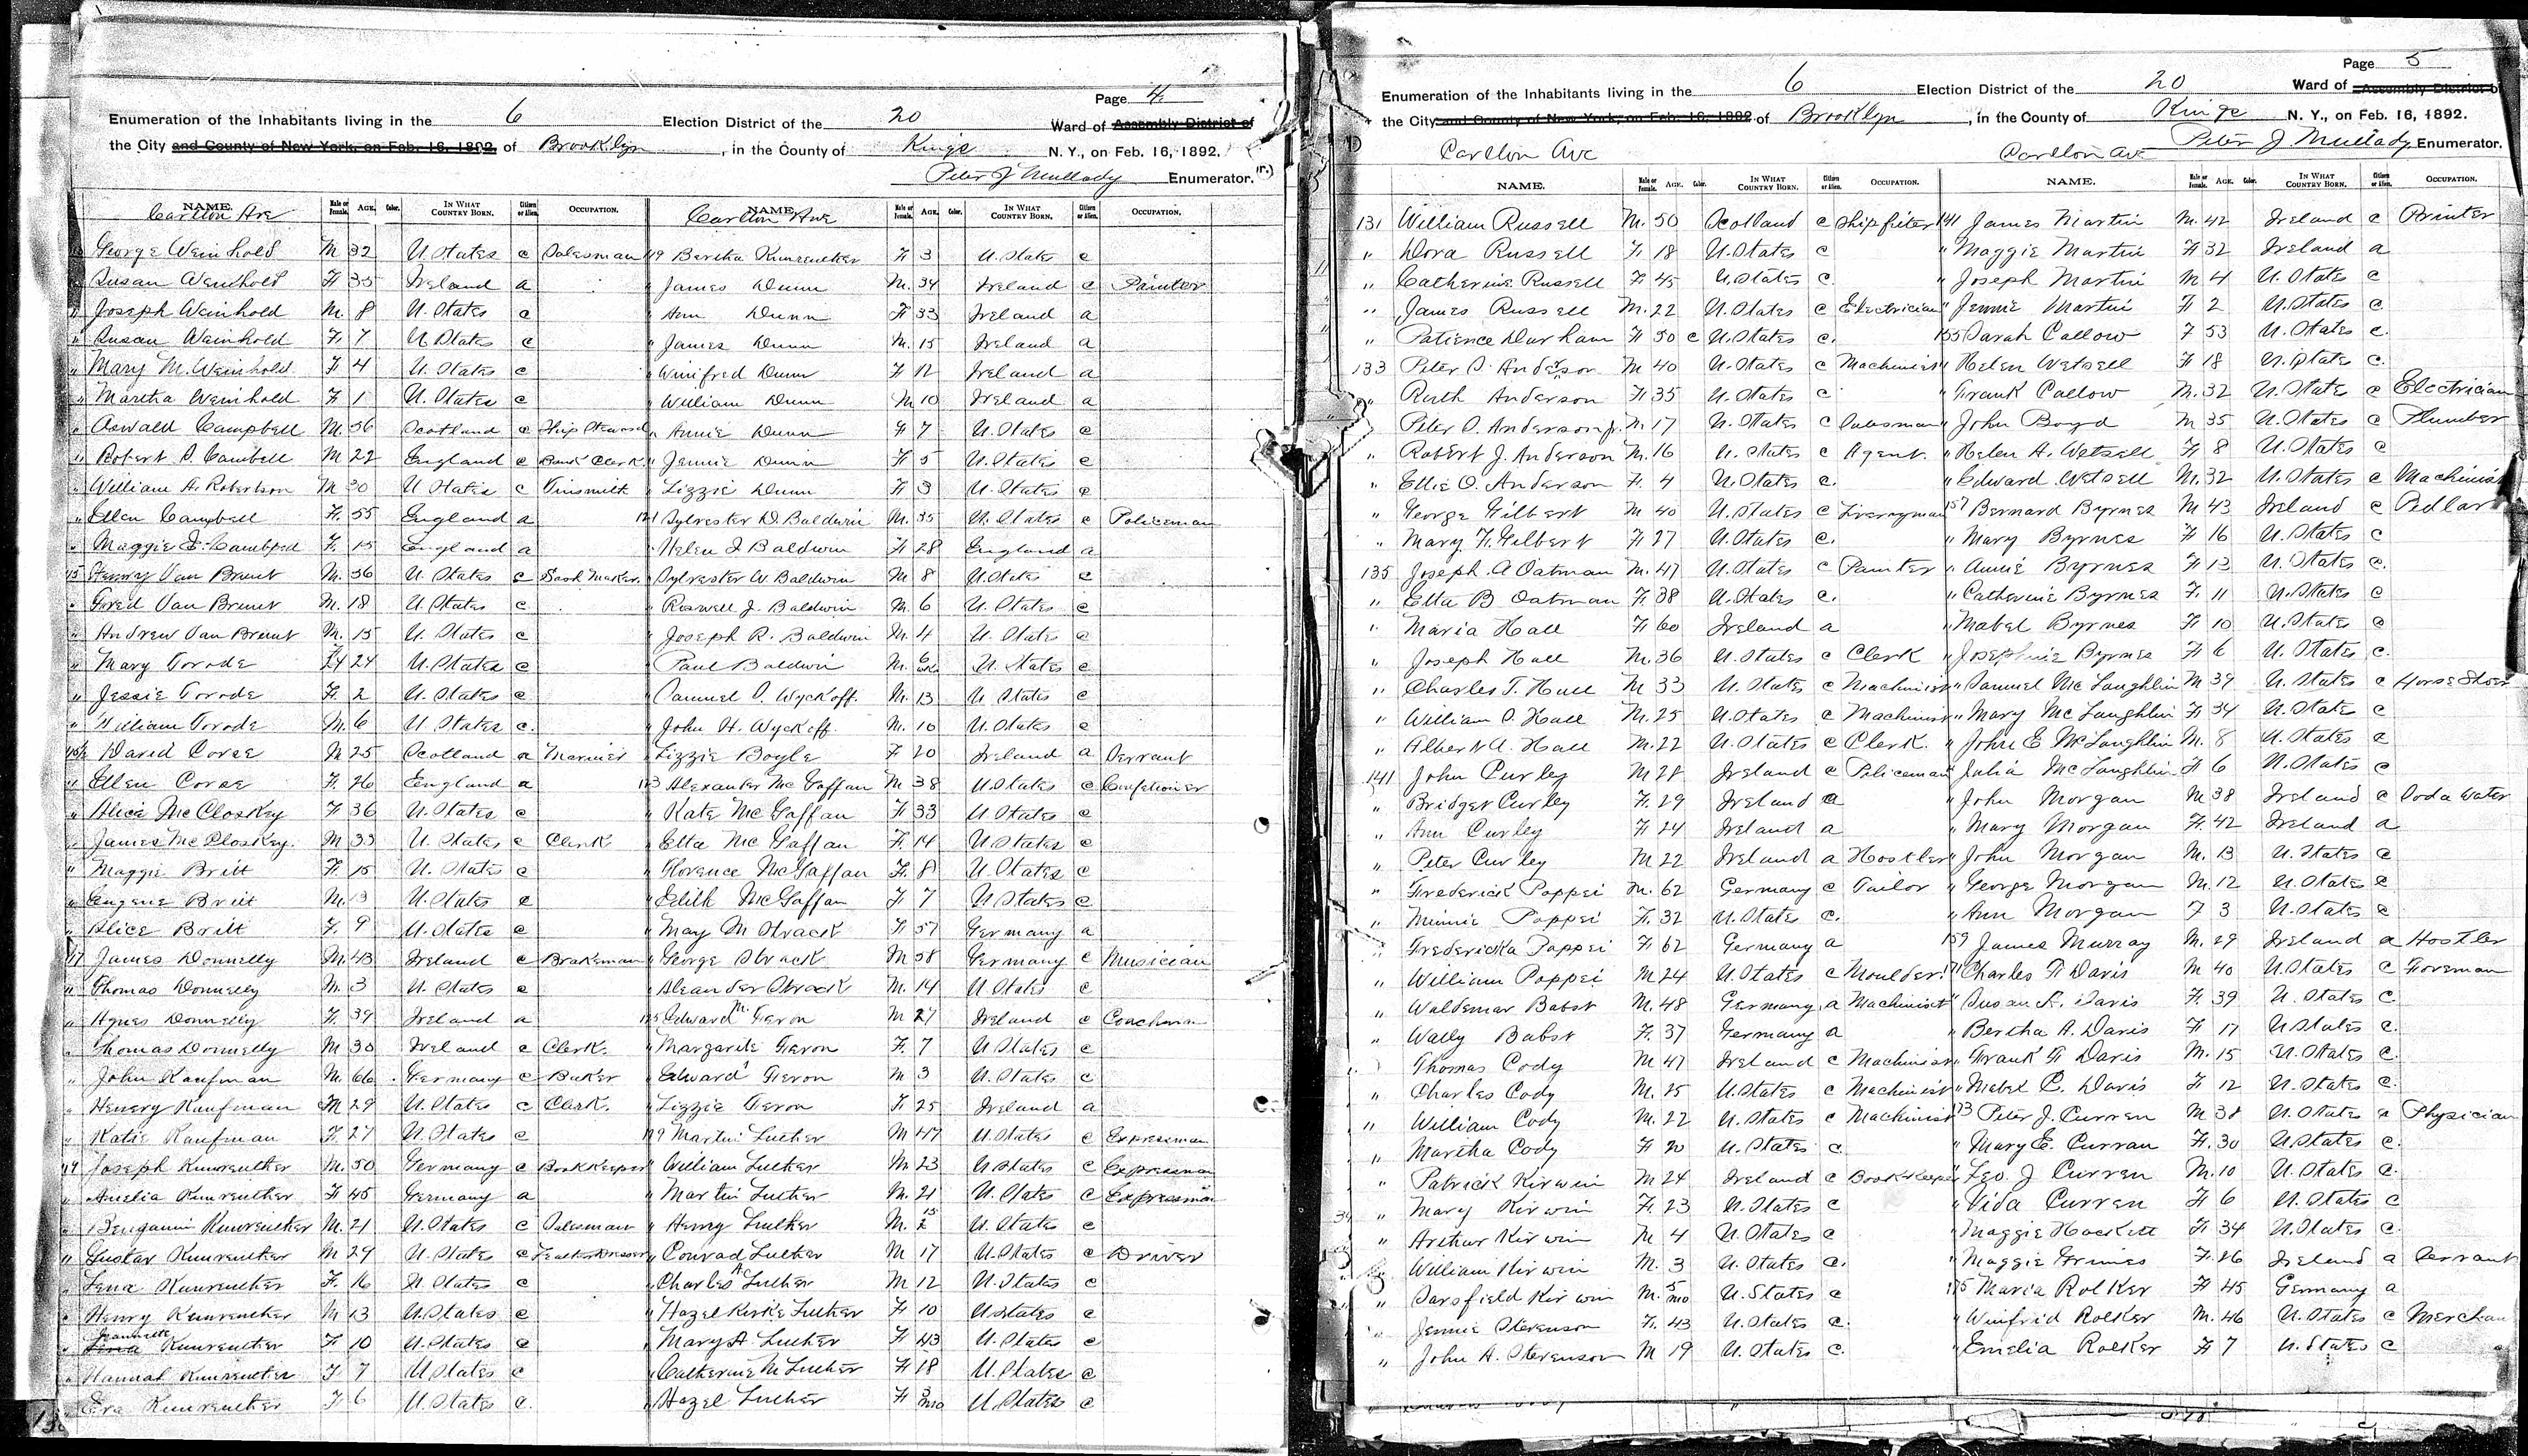 Page 4.
Enumeration of the Inhabitants living in the 6 Election District of the 20 Ward of Assembly District of
the City and County of New York, on Feb. 16, 1892. of Brooklyn, in the County of Kings N. Y., on Feb. 16, 1892.
Peter J Mullady Enumerator.
NAME. Male or Female. AGE. Color. IN WHAT COUNTRY BORN. Citizen or Alien. OCCUPATION.
Carlton Ave
George Weinhold M 32 U States c Salesman
Susan Weinhold F 35 Ireland a
Joseph Weinhold M. 8 U. States c
Susan Weinhold F. 7 U States c
Mary M. Weinhold F 4 U. States c
Martha Weinhold F 1 U. States c
Oswald Campbell M. 56 Scotland c Ship Steward
Robert S. Cambell M 22 England c Bank Clerk
William A. Robertson M 30 U States c Tinsmith
Ellen Campbell F. 55 England a
Maggie E. F. 15 England a
Henry Van Brunt M. 56 U. States c Sash Maker
Fred Van Brunt M. 18 U. States c
Andrew Van Brunt M. 15 U. States c
Mary Torode F 24 U. States c
Jessie Torode F. 2 U. States c
William Torode M. 6 U States c.
David Corse M 25 Scotland a Mariner
Ellen Corse F. 26 England a
Alice McCloskey F 36 U. States c
James McCloskey. M 33 U. States c Clerk
Maggie Britt F. 15 U. States c
Eugene Britt M. 13 U. States c
Alice Britt F. 9 U. States c
117 James Donnelly M. 43 Ireland c Brakeman
Thomas Donnelly M. 3 U. States c
Agnes Donnelly F. 39 Ireland a
Thomas Donnelly M 30 Ireland c Clerk.
John Kaufman M. 66 Germany c Baker
Henery Kaufman M 29 U. States c Clerk.
Katie Kaufman F. 27 U. States c
119 Joseph Kunreuther M. 50 Germany c Bookkeeper
Amelia Kunreuther F 45 Germany a
Bengamin Kunreuther M. 21 U. States c Salesman
Gustav Kunreuther M 29 U. States c
Lena Kunreuther F. 16 U. States c
Henry Kunreuther M 13 U. States c
Jeannette Kunreuther F 10 U. States c
Hannah Kunreuther F. 7 U States c
Eva Kunreuther F. 6 U. States c.
NAME. Male or Female. AGE. Color. IN WHAT COUNTRY BORN. Citizen or Alien. OCCUPATION.
Carlton Ave
119 Bertha Kunreuther F 3 U. States c
James Dunn M. 34 Ireland c Painter
Ann Dunn F 33 Ireland a
James Dunn M. 15 Ireland a
Winifred Dunn F 12 Ireland a
William Dunn M 10 Ireland a
Annie Dunn F 7 U. States c
Jennie Dunn F 5 U. States c
Lizzie Dunn F 3 U. States c
121 Sylvester D. Baldwin M. 35 U. States c Policeman
Helen I Baldwin F 28 England a
Sylvester W Baldwin M 8 U. States c
Roswell J. Baldwin M. 6 U. States c
Joseph R. Baldwin M. 4 U. States c
Paul Baldwin M. 6 U. States c
Samuel S. Wyckoff. M. 13 U States c
John H. Wyckoff M. 10 U. States c
Lizzie Boyle F 20 Ireland a Servant
123 Alexander McGaffan M 38 U. States c Confetioner
Kate McGaffan F 33 U States c
Etta McGaffan F. 14 U States c
Florence McGaffan F. 8 U. States c
Edith McGaffan F 7 U States c
May M Strack F 57 Germany a
George Strack M 58 Germany c Musician
Aleander Strack M. 14 U. States c
125 Edward M. Feron M 27 Ireland c Coachman
Margarite Feron F. 7 U States c
Edward Feron M 3 U. States c
Lizzie Feron F. 25 Ireland a
129 Martin Luther M 47 U. States c Expressman
William Luther M 23 U States c Expressman
Martin Luther M. 21 U. States c Expressman
Henry Luther M. 15 U. States c
Conrad Luther M 17 U. States c Driver
Charles A Luther M 12 U. States c
Hazel Kirke Luther F 10 U States c
Mary A. Luther F 43 U. States c
Catherine M Luther F 18 U. States c
Hazel Luther F 3 mo U. States c
Page 5
Enumeration of the Inhabitants living in the 6 Election District of the 20 Ward of Assembly District of
the City and County of New York, on Feb. 16, 1892 of Brooklyn, in the County of Kings N. Y., on Feb. 16, 1892.
Carlton Ave Carlton Ave Peter J Mullady Enumerator.
NAME. Male or Female. AGE. Color. IN WHAT COUNTRY BORN. Citizen or Alien. OCCUPATION.
131 William Russell M. 50 Scotland c Shipfiter
" Dora Russell F. 18 U. States c
" Catherine Russell F. 45 U. States c.
" James Russell M. 22 U. States c Electrician
" Patience Durham F 50 c U. States c.
133 Peter S. Anderson M 40 U. States c Machinist
" Ruth Anderson F. 35 U. States c
" Peter S. Anderson jr. M. 17 U. States c Salesman
" Robert J. Anderson M. 16 U. States c Agent.
" Ellie O. Anderson F. 4 U. States c.
" George Gilbert M 40 U. States c Liveryman
" Mary F. Gilbert F 27 U. States c.
135 Joseph A Oatman M. 47 U. States c Painter
" Etta B Oatman F. 38 U. States c.
" Maria Hall F 60 Ireland a
" Joseph Hall M. 36 U. States c Clerk
" Charles T. Hall M 33 U. States c Machinist
" William S. Hall M. 25 U. States c Machinist
" Albert A. Hall M. 22 U. States c Clerk.
141 John Curley M 28 Ireland c Policeman
" Bridget Curley F. 29 Ireland a
" Ann Curley F 24 Ireland a
" Peter Curley M 22 Ireland a Hostler
" Frederick Poppei M. 62 Germany c Tailor
" Minnie Poppei F. 32 U. States c.
" Fredericka Poppei F 62 Germany a
" William Poppei M 24 U. States c Moulder
" Waldemar Babst M. 48 Germany a Machinist
" Wally Babst F. 37 Germany a
" Thomas Cody M 47 Ireland c Machinist
" Charles Cody M. 25 U. States c Machinist
" William Cody M. 22 U. States c Machinist
" Martha Cody F 20 U. States c
" Patrick Kirwin M 24 Ireland c Book Keeper
" Mary Kirwin F. 23 U. States c
" Arthur Kirwin M 4 U. States c
" William Kirwin M. 3 U. States c.
" Sarsfield Kirwin M. 5 mo U. States c
" Jennie Stevenson F. 43 U. States c.
" John A. Stevenson M 19 U. States c.
NAME. Male or Female. AGE. Color. IN WHAT COUNTRY BORN. Citizen or Alien. OCCUPATION.
141 James Martin M. 42 Ireland c Printer
" Maggie Martin F 32 Ireland a
" Joseph Martin M 4 U. States c
" Jennie Martin F 2 U. States c
155 Sarah Callow F 53 U. States c.
" Helen Wetsell F 18 U. States c.
" Frank Callow M. 32 U. States c Electrician
" John Boyd M 35 U. States c Plumber
" Helen A. Wetsell F 8 U. States c
" Edward Wetsell M. 32 U. States c Machinist
157 Bernard Byrnes M 43 Ireland c Pedlar
" Mary Byrnes F 16 U. States c
" Annie Byrnes F 13 U. States c.
" Catherine Byrnes F. 11 U. States c
" Mabel Byrnes F 10 U. States c
" Josephine Byrnes F 6 U. States c.
" Samuel McLaughlin M 39 U. States c Horse Shoer
" Mary McLaughlin F 34 U. States c
" John E McLaughlin M. 8 U. States a
" Julia McLaughlin F 6 U. States c
" John Morgan M 38 Ireland c Soda Water
" Mary Morgan F. 42 Ireland a
" John Morgan M. 13 U. States c
" George Morgan M. 12 U. States c
" Ann Morgan F 3 U. States c
159 James Murray M. 29 Ireland a Hostler
Charles F Davis M 40 U. States c Foreman
" Susan A. Davis F. 39 U. States c.
" Bertha A. Davis F 17 U States c.
" Frank F Davis M. 15 U. States c.
" Mabel C. Davis F 12 U. States c.
Peter J. Curren M 38 U. States c Physician
" Mary E. Curran F. 30 U. States c.
" Leo. J Curren M. 10 U. States c.
" Vida Curren F 6 U. States c
" Maggie Hackett F 34 U. States c.
" Maggie Grimes F. 26 Ireland a Servant
175 Maria Rolker F 45 Germany a
" Winfrid Rolker M. 46 U. States c Merchan
" Emelia Rolker F 7 U. States c